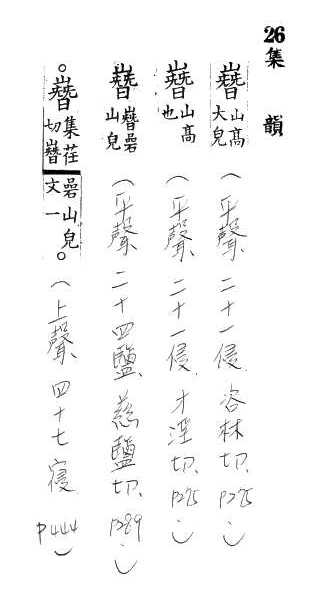 26集 韻
嶜山高大皃(平聲 二十一侵. 咨林切. P275)
嶜山高也(平聲 二十一侵. 才淫切. P275)
嶜嶜嵒山皃(平聲 二十四鹽. 慈鹽切. P289)
。嶜集荏切嶜嵒山皃文一。(上聲 四十七寑 P444)